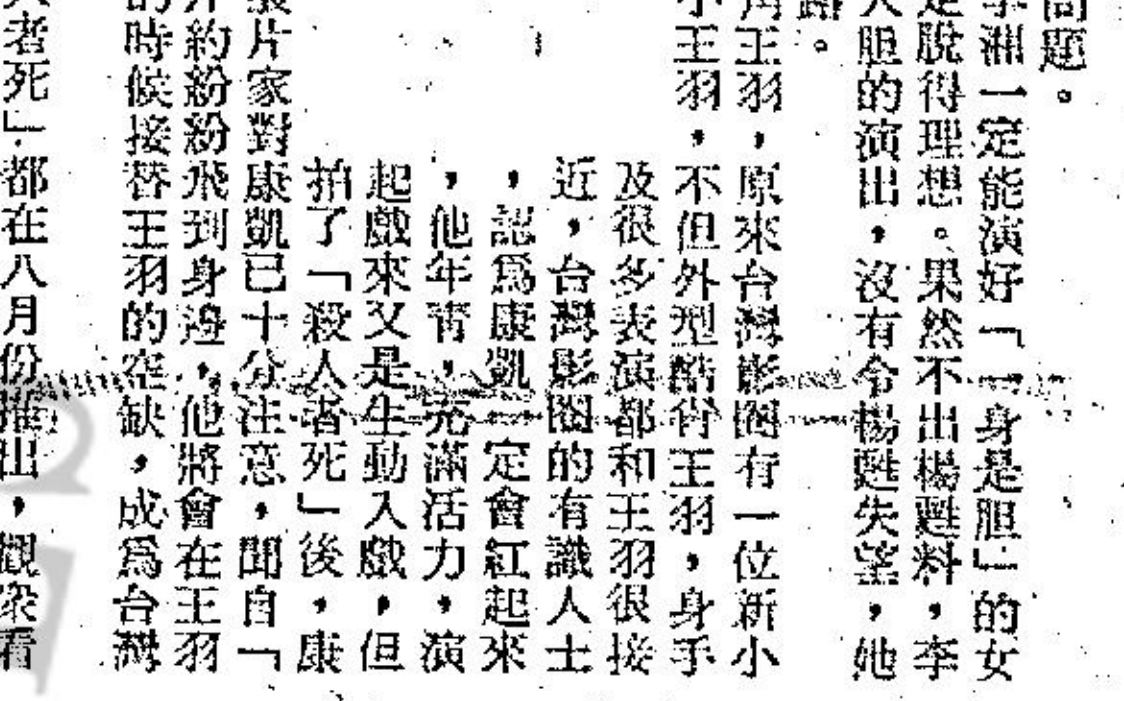 問題。
李湄一定能演好「一身是胆」的女
定脫得理想。果然不出楊甦料，李
大胆的演出，沒有令楊甦失望，她
路。
角王羽，原來台灣影圈有一位新小
小王羽，不但外型酷肖王羽，身手
及很多表演都和王羽很接
近，台灣影圈的有識人士
，認爲康凱一定會紅起來
，他年靑，充滿活力，演
起戲來又是生動入戲，但
拍了「殺人者死」後，康
製片家對康凱已十分注意，聞自「
片約紛紛飛到身邊，他將會在王羽
的時候接替王羽的空缺，成爲台灣
人者死」都在八月份推出，觀衆看